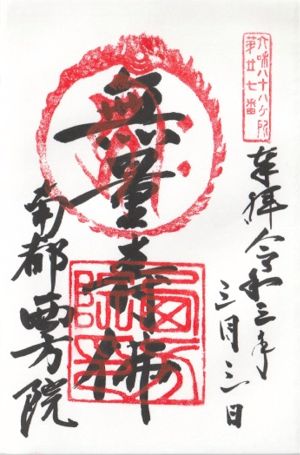 八十八ヶ所
第廿七番
奉拝 令和三年
三月三日
無量寿佛
南都 西方院